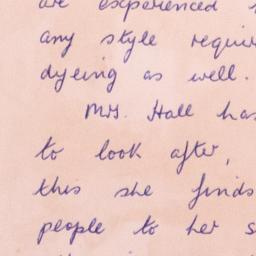 are experienced
any style
dyeing as well.
Mrs. Hall has
to look after,
this she finds
people to her